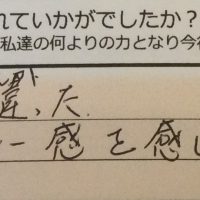 れていかがでしたか？
私達の何よりの力となり今
違った
一感を感